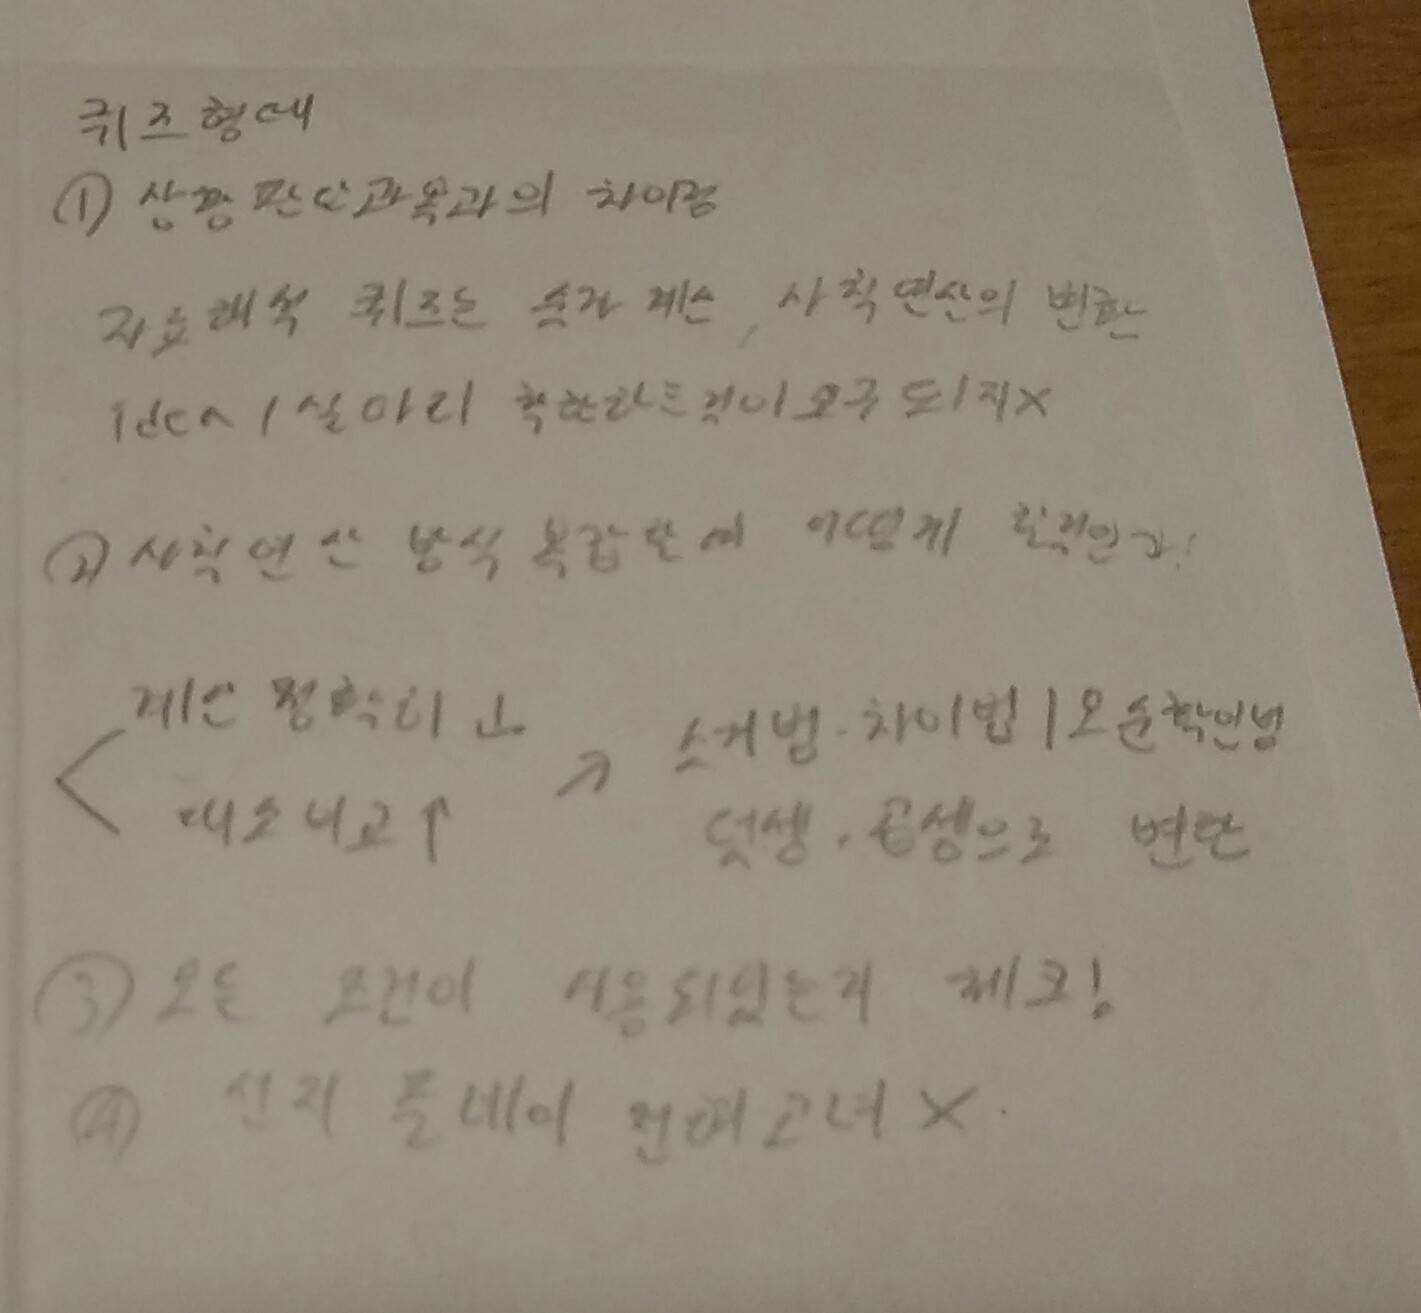 퀴즈형태
① 상황판단과목과의 차이점
자료해석 퀴즈는 숫자 계산, 사칙연산의 변환
idea / 실마리 하는것이 요구되지X
② 사칙연산 방식 복합하여 어떻게
계산 정확히
대소비교↑
↗ 소거법·차이법 / 모순확인법
덧셈·곱셈으로 변환
③ 모든 조건이 사용되었는지 체크!
④ 선지 플레이 전혀 고려 X.